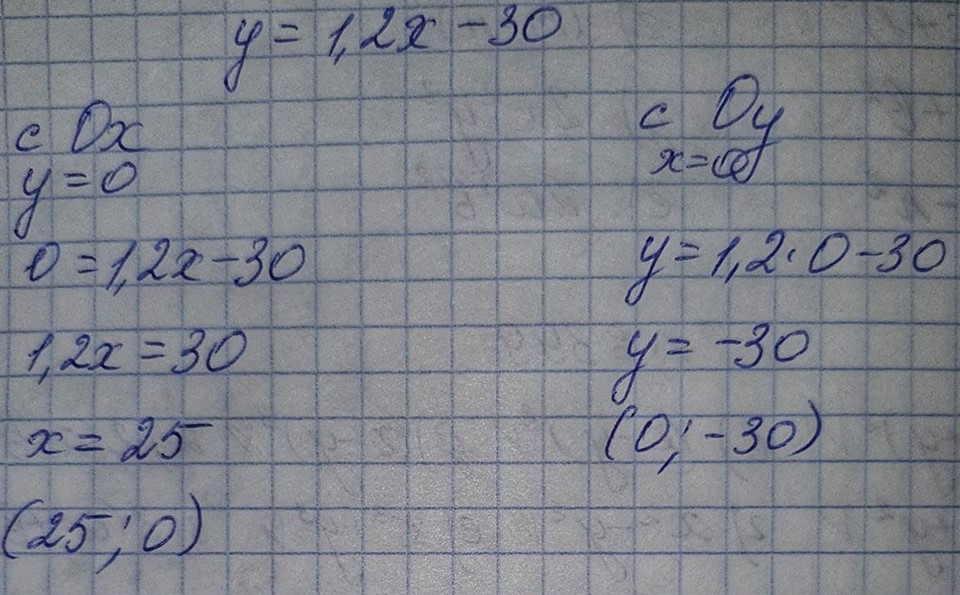 y = 1,2x - 30
с Ox
y = 0
0 = 1,2x - 30
1,2x = 30
x = 25
(25; 0)
с Oy
x = 0
y = 1,2 · 0 - 30
y = -30
(0; -30)